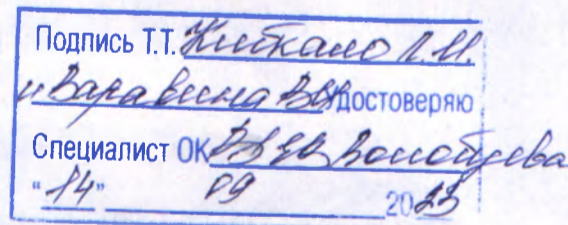 Подпись Т.Т. Житкало Л.И.
и Варавина В.И. удостоверяю
Специалист ОК Волобуева
"14" 09 2023